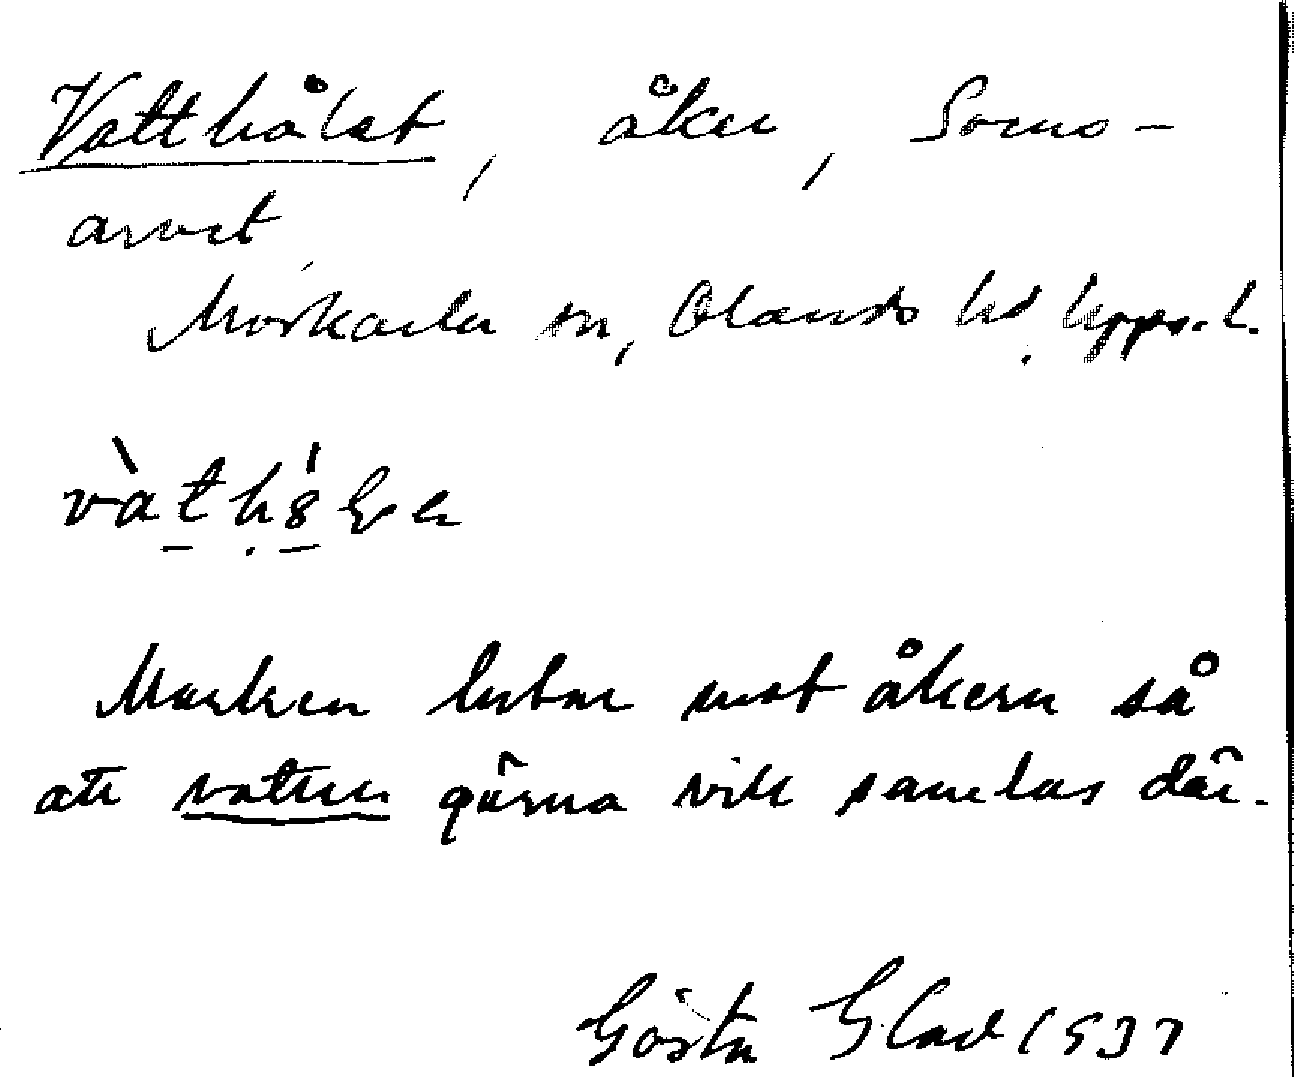 Vatthålet, åker, Soms-
arvet
Morkarla sn, Olands hd, Upps. l.
Marken lutar mot åkern så
att vatten gärna vill samlas där.
Gösta Glad 1937